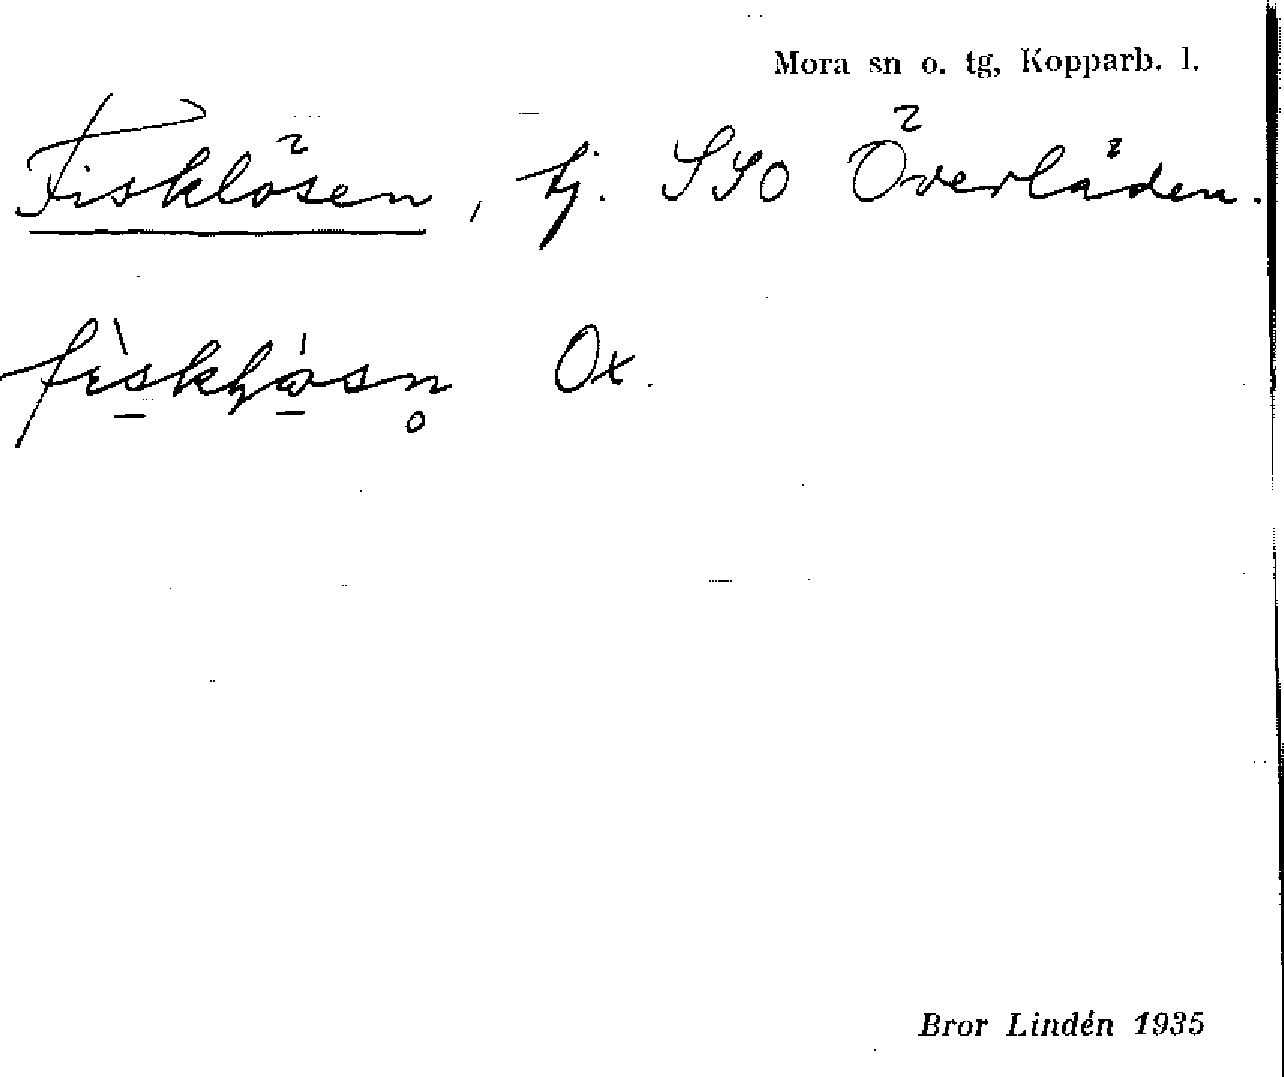 Mora sn o. tg, Kopparb. l.
Fisklösen, tj. SSO Överlöden.
Ox.
Bror Lindén 1935